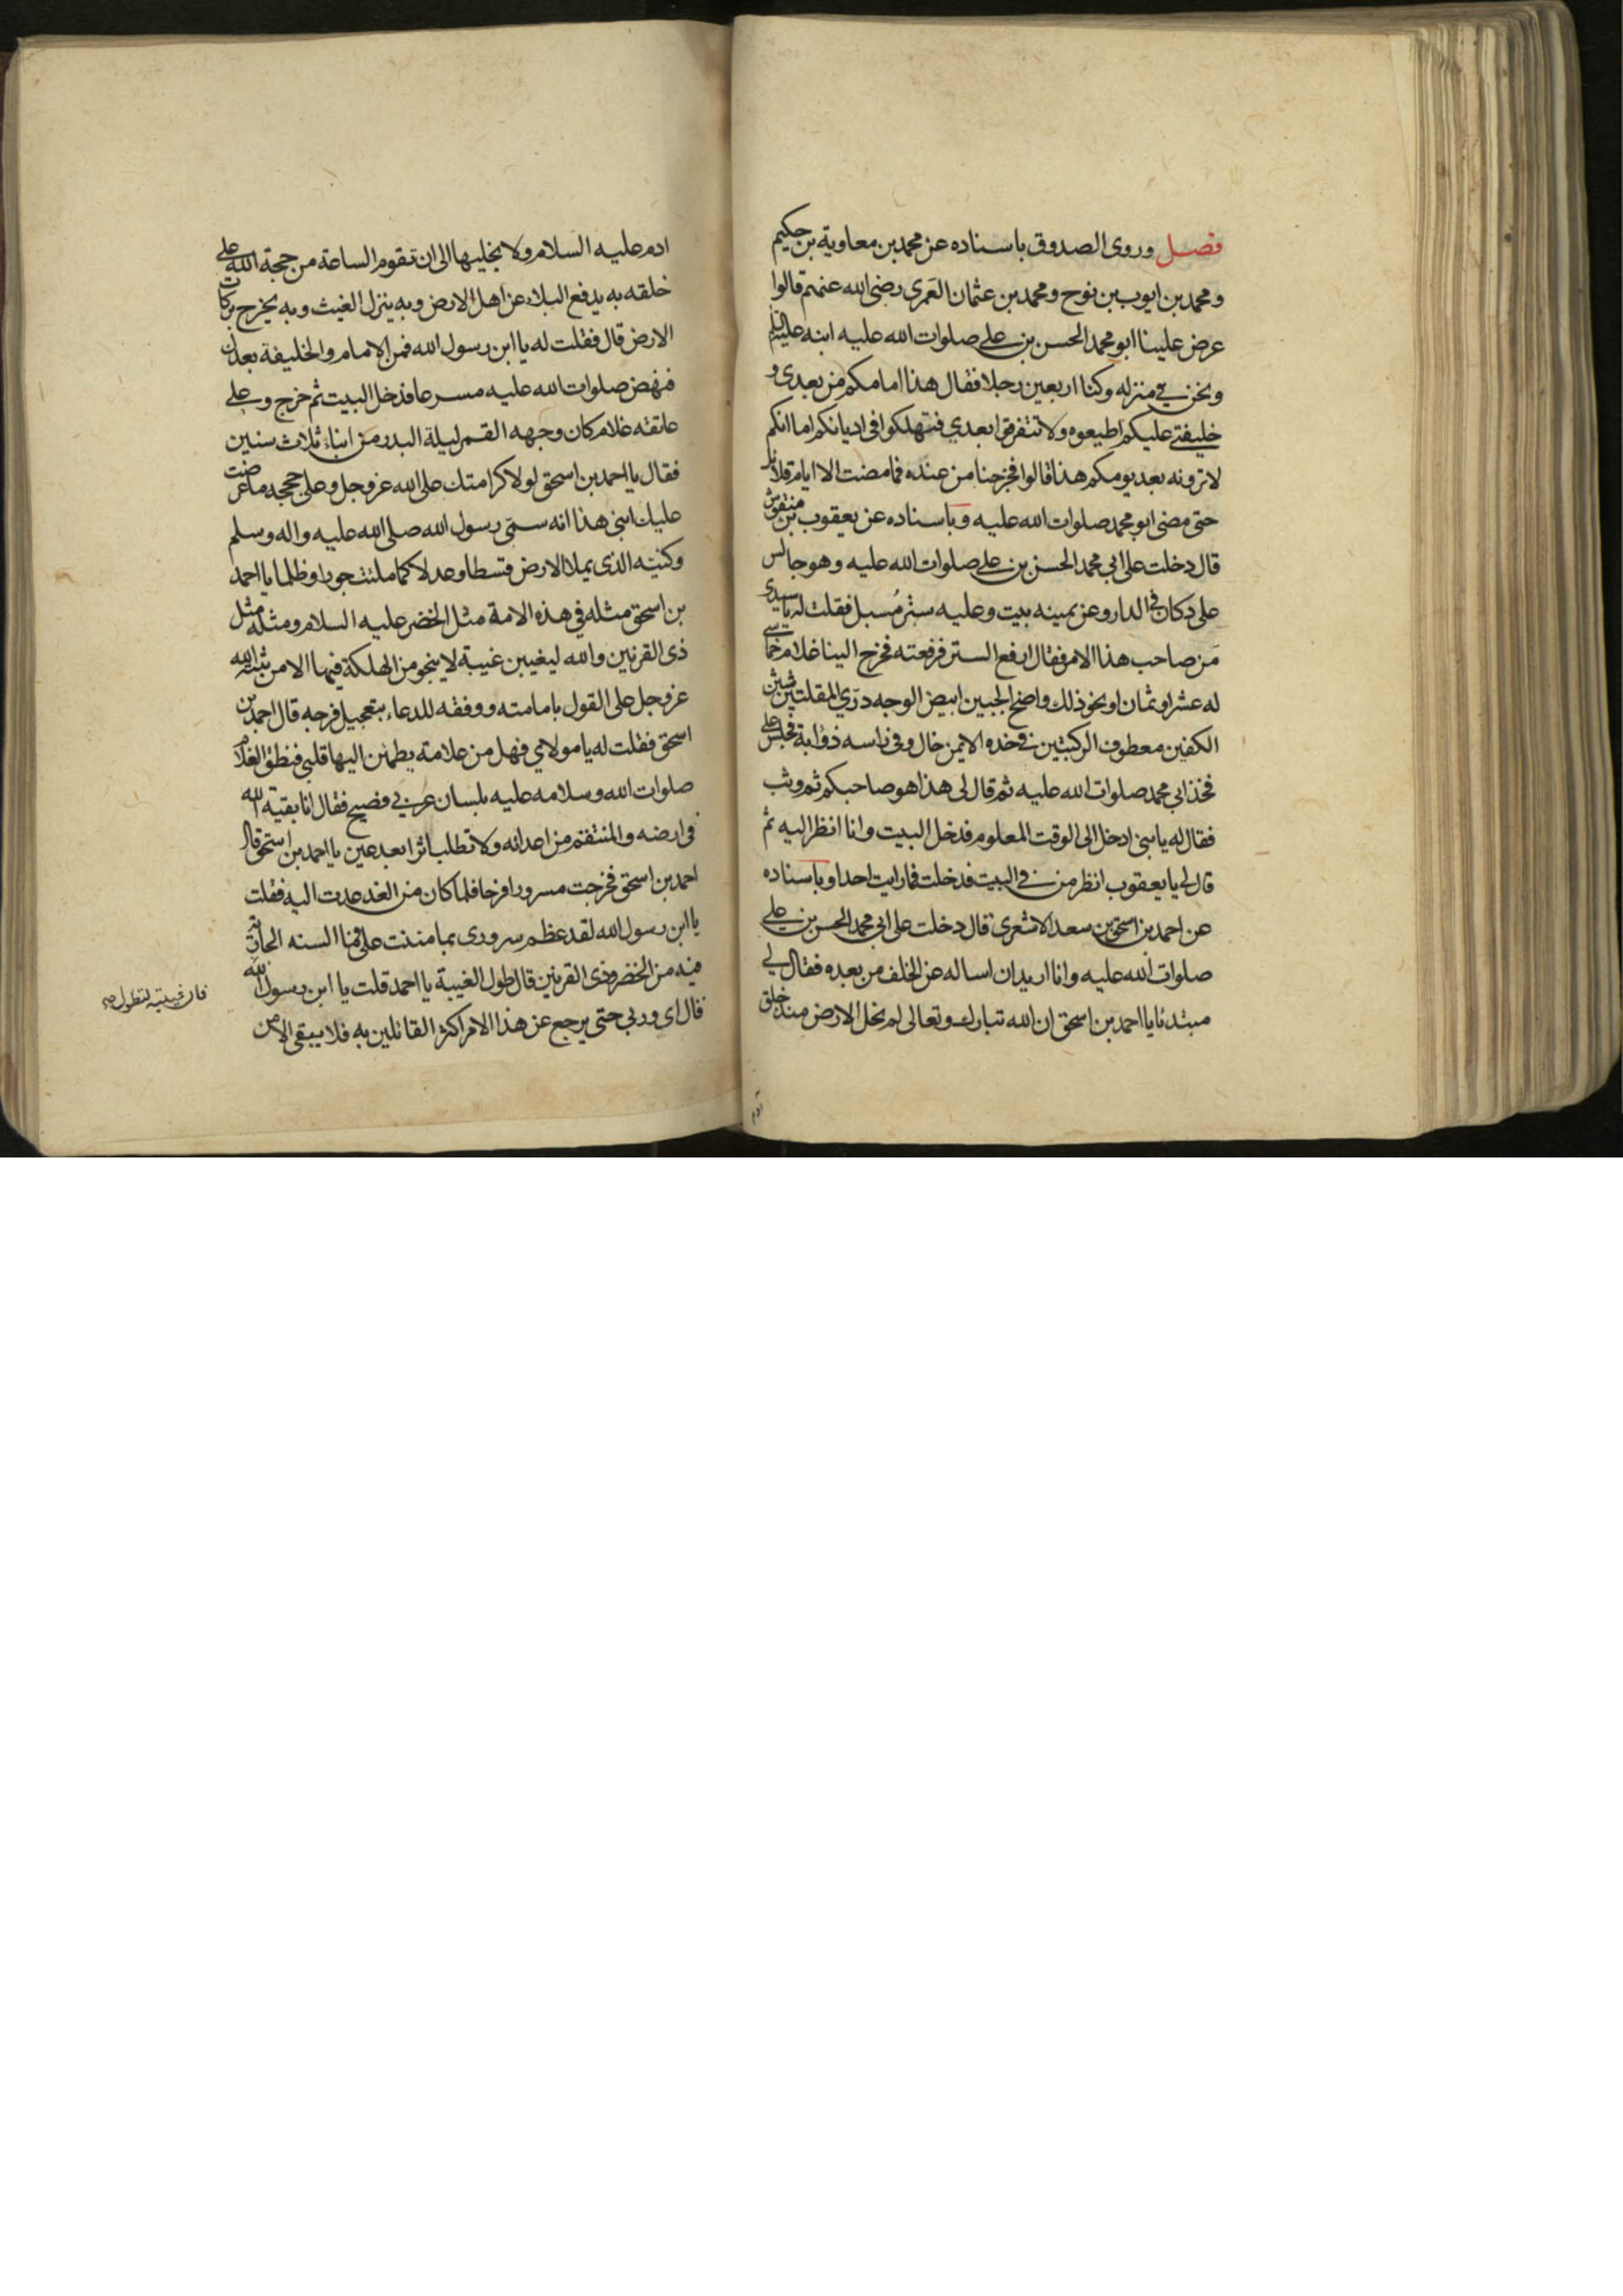 فصل وروى الصدوق باسناده عن محمد بن معاوية بن حكيم
ومحمد بن ايوب بن نوح ومحمد بن عثمان العمرى رضى الله عنهم قالوا
عرض علينا ابو محمد الحسن بن على صلوات الله عليه ابنه عليه السلم
ونحن في منزله وكنا اربعين رجلا فقال هذا امامكم من بعدى و
خليفتي عليكم اطيعوه ولا تتفرقوا بعدي فتهلكوا فى اديانكم اما انكم
لا ترونه بعد يومكم هذا قالوا فخرجنا من عنده فما مضت الا ايام قلائل
حتى مضى ابو محمد صلوات الله عليه وباسناده عن يعقوب بن منقوش
قال دخلت على ابي محمد الحسن بن على صلوات الله عليه وهو جالس
على دكان في الدار وعن يمينه بيت وعليه ستر مُسبل فقلت له يا سيدى
مَن صاحب هذا الامر فقال ارفع الستر فرفعته فخرج الينا غلام خماسي
له عشر او ثمان او نحو ذلك واضح الجبين ابيض الوجه درّي المقلتين شثن
الكفين معطوف الركبتين في خده الايمن خال وفى راسه ذؤابة فجلس على
فخذ ابي محمد صلوات الله عليه ثم قال لى هذا هو صاحبكم ثم وثب
فقال له يا بنى ادخل الى الوقت المعلوم فدخل البيت وانا انظر اليه ثم
قال لي يا يعقوب انظر من في البيت فدخلت فما رايت احدا وباسناده
عن احمد بن اسحق بن سعد الاشعرى قال دخلت على ابي محمد الحسن بن على
صلوات الله عليه وانا اريد ان اساله عن الخلف من بعده فقال لي
مبتدئا يا احمد بن اسحق ان الله تبارك وتعالى لم يخل الارض منذ خلق
ادم عليه السلام ولا يخليها الى ان تقوم الساعة من حجة الله على
خلقه به يدفع البلاء عن اهل الارض وبه ينزل الغيث وبه يخرج بركات
الارض قال فقلت له يا ابن رسول الله فمن الامام والخليفة بعدك
فنهض صلوات الله عليه مسرعا فدخل البيت ثم خرج وعلى
عاتقه غلام كان وجهه القمر ليلة البدر من ابناء ثلاث سنين
فقال يا احمد بن اسحق لولا كرامتك على الله عز وجل وعلى حججه ما عرضت
عليك ابنى هذا انه سمّى رسول الله صلى الله عليه واله وسلم
وكنيّه الذى يملا الارض قسطا وعدلا كما ملئت جورا وظلما يا احمد
بن اسحق مثله في هذه الامة مثل الخضر عليه السلام ومثله مثل
ذى القرنين والله ليغيبن غيبة لا ينجو من الهلكة فيها الا من ثبته الله
عز وجل على القول بامامته ووفقه للدعاء بتعجيل فرجه قال احمد بن
اسحق فقلت له يا مولاي فهل من علامة يطمئن اليها قلبي فنطق الغلام
صلوات الله وسلامه عليه بلسان عربي فصيح فقال انا بقية الله
فى ارضه والمنتقم من اعدائه ولا تطلب اثرا بعد عين يا احمد بن اسحق قال
احمد بن اسحق فخرجت مسرورا فرحا فلما كان من الغد عدت اليه فقلت
يا ابن رسول الله لقد عظم سرورى بما مننت على فما السنه الجارية
فيه من الخضر وذى القرنين قال طول الغيبة يا احمد قلت يا ابن رسول الله
قال اى وربي حتى يرجع عن هذا الامر اكثر القائلين به فلا يبقى الا من
فان غيبته لتطول صح